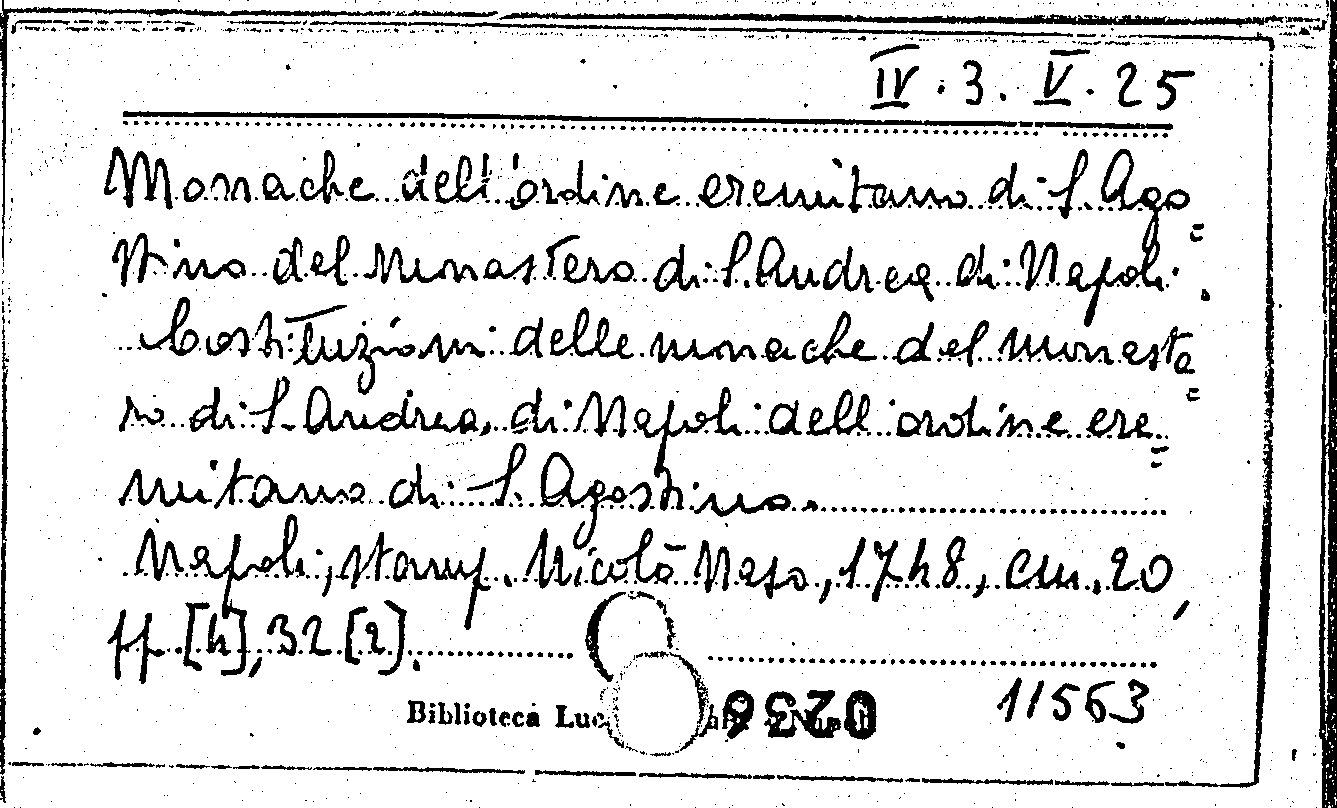 IV. 3. V. 25
Monache dell'ordine eremitano di S. Ago=
stino del Monastero di S. Andrea di Napoli.
Costituzioni delle monache del monaste=
ro di S. Andrea, di Napoli dell'ordine ere=
mitano di S. Agostino.
Napoli, stamp. Nicolò Naso, 1748, cm. 20,
pp. [4], 32 [2].
11563
Biblioteca